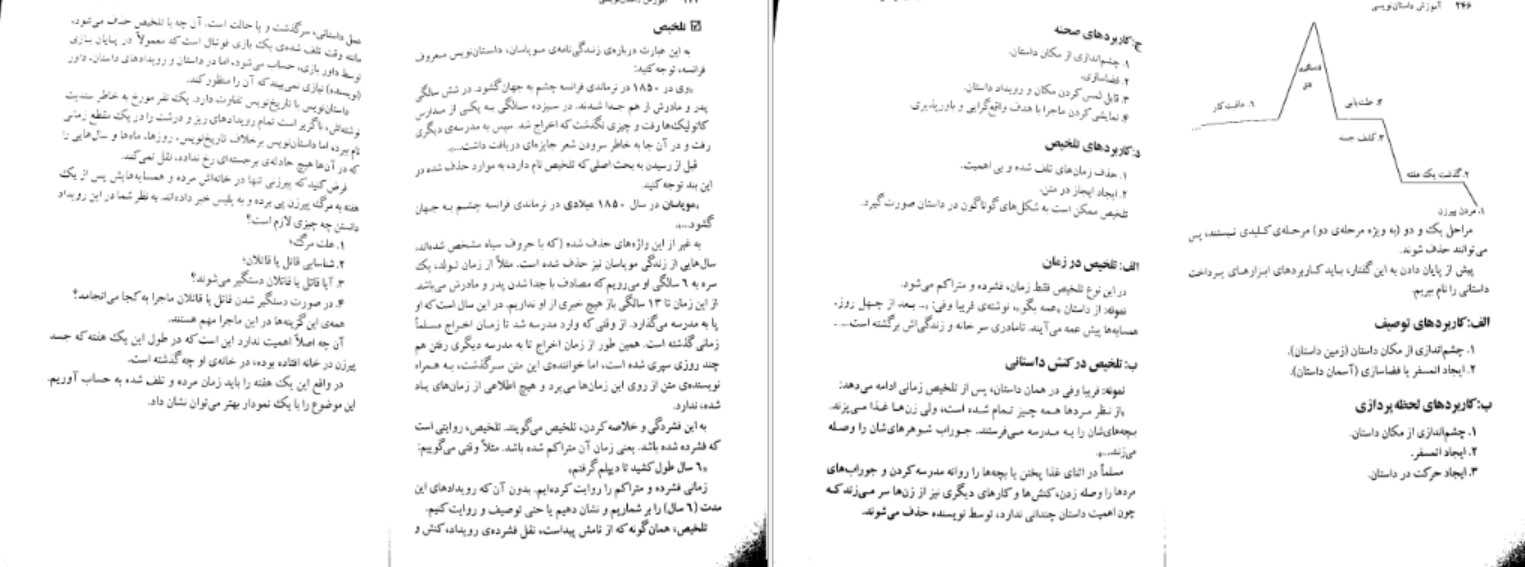 ۲۴۴ آموزش داستان‌نویسی
☑ تلخیص
به این عبارت درباره‌ی زندگی‌نامه‌ی موپاسان، داستان‌نویس معروف
فرانسه، توجه کنید:
«وی در ۱۸۵۰ در نرماندی فرانسه چشم به جهان گشود. در شش سالگی
پدر و مادرش از هم جدا شدند. در سیزده سالگی به یکی از مدارس
کاتولیک‌ها رفت و چیزی نگذشت که اخراج شد. سپس به مدرسه‌ی دیگری
رفت و در آن جا به خاطر سرودن شعر جایزه‌ای دریافت داشت...»
قبل از رسیدن به بحث اصلی که تلخیص نام دارد، به موارد حذف شده در
این بند توجه کنید.
«موپاسان در سال ۱۸۵۰ میلادی در نرماندی فرانسه چشم به جهان
گشود...»
به غیر از این واژه‌های حذف شده (که با حروف سیاه مشخص شده‌اند)،
سال‌هایی از زندگی موپاسان نیز حذف شده است. مثلاً از زمان تولد، یک
سره به ۶ سالگی او می‌رویم که مصادف با جدا شدن پدر و مادرش می‌باشد.
از این زمان تا ۱۳ سالگی باز هیچ خبری از او نداریم. در این سال است که او
پا به مدرسه می‌گذارد. از وقتی که وارد مدرسه شد تا زمان اخراج مسلماً
زمانی گذشته است. همین طور از زمان اخراج تا به مدرسه دیگری رفتن هم
چند روزی سپری شده است، اما خواننده‌ی این متن سرگذشت، به همراه
نویسنده‌ی متن از روی این زمان‌ها می‌پرد و هیچ اطلاعی از زمان‌های یاد
شده، ندارد.
به این فشردگی و خلاصه کردن، تلخیص می‌گویند. تلخیص، روایتی است
که فشرده شده باشد. یعنی زمان آن متراکم شده باشد. مثلاً وقتی می‌گوییم:
«۶ سال طول کشید تا دیپلم گرفتم»
زمانی فشرده و متراکم را روایت کرده‌ایم. بدون آن که رویدادهای این
مدت (۶ سال) را بر شماریم و نشان دهیم یا حتی توصیف و روایت کنیم.
تلخیص، همان‌گونه که از نامش پیداست، نقل فشرده‌ی رویداد، کنش و
عمل داستانی، سرگذشت و یا حالت است. آن چه با تلخیص حذف می‌شود،
مانند وقت تلف شده‌ی یک بازی فوتبال است که معمولاً در پایان بازی
توسط داور بازی، حساب می‌شود، اما در داستان و رویدادهای داستان، داور
(نویسنده) نیازی نمی‌بیند که آن را منظور کند.
داستان‌نویس با تاریخ‌نویس تفاوت دارد. یک نفر مورخ به خاطر سندیت
نوشته‌اش، ناگزیر است تمام رویدادهای ریز و درشت را در یک مقطع زمانی
نام ببرد، اما داستان‌نویس برخلاف تاریخ‌نویس، روزها، ماه‌ها و سال‌هایی را
که در آن‌ها هیچ حادثه‌ی برجسته‌ای رخ نداده، نقل نمی‌کند.
فرض کنید که پیرزنی تنها در خانه‌اش مرده و همسایه‌هایش پس از یک
هفته به مرگ پیرزن پی برده و به پلیس خبر داده‌اند. به نظر شما در این رویداد
دانستن چه چیزی لازم است؟
۱. علت مرگ؛
۲. شناسایی قاتل یا قاتلان؛
۳. آیا قاتل یا قاتلان دستگیر می‌شوند؟
۴. در صورت دستگیر شدن قاتل یا قاتلان ماجرا به کجا می‌انجامد؟
همه‌ی این گزینه‌ها در این ماجرا مهم هستند.
آن چه اصلاً اهمیت ندارد این است که در طول این یک هفته که جسد
پیرزن در خانه افتاده بوده، در خانه‌ی او چه گذشته است.
در واقع این یک هفته را باید زمان مرده و تلف شده به حساب آوریم.
این موضوع را با یک نمودار بهتر می‌توان نشان داد.
۲۴۶ آموزش داستان‌نویسی
دستگیری
۶. عاقبت کار
۴. علت‌یابی
۳. کشف جسد
۲. گذشت یک هفته
۱. مردن پیرزن
مراحل یک و دو (به ویژه مرحله‌ی دو) مرحله‌ی کلیدی نیستند، پس
می‌توانند حذف شوند.
پیش از پایان دادن به این گفتار، باید کاربردهای ابزارهای پرداخت
داستانی را نام ببریم.
الف: کاربردهای توصیف
۱. چشم‌اندازی از مکان داستان (زمین داستان).
۲. ایجاد اتمسفر یا فضاسازی (آسمان داستان).
ب: کاربردهای لحظه پردازی
۱. چشم‌اندازی از مکان داستان.
۲. ایجاد اتمسفر.
۳. ایجاد حرکت در داستان.
ج: کاربردهای صحنه
۱. چشم‌اندازی از مکان داستان.
۲. فضاسازی.
۳. قابل لمس کردن مکان و رویداد داستان.
۴. نمایشی کردن ماجرا با هدف واقع‌گرایی و باورپذیری.
د: کاربردهای تلخیص
۱. حذف زمان‌های تلف شده و بی اهمیت.
۲. ایجاد ایجاز در متن.
تلخیص ممکن است به شکل‌های گوناگون در داستان صورت گیرد.
الف: تلخیص در زمان
در این نوع تلخیص فقط زمان، فشرده و متراکم می‌شود.
نمونه: از داستان «عمه بگو»، نوشته‌ی فریبا وفی: «... بعد از چهل روز،
همسایه‌ها پیش عمه می‌آیند. نامادری سر خانه و زندگی‌اش برگشته است...»
ب: تلخیص در کنش داستانی
نمونه: فریبا وفی در همان داستان، پس از تلخیص زمانی ادامه می‌دهد:
«از نظر مردها همه چیز تمام شده است، ولی زن‌ها غذا می‌پزند.
بچه‌های‌شان را به مدرسه می‌فرستند. جوراب شوهرهای‌شان را وصله
می‌زنند...»
مسلماً در اثنای غذا پختن یا بچه‌ها را روانه مدرسه کردن و جوراب‌های
مردها را وصله زدن، کنش‌ها و کارهای دیگری نیز از زن‌ها سر می‌زند که
چون اهمیت داستان چندانی ندارد، توسط نویسنده حذف می‌شوند.